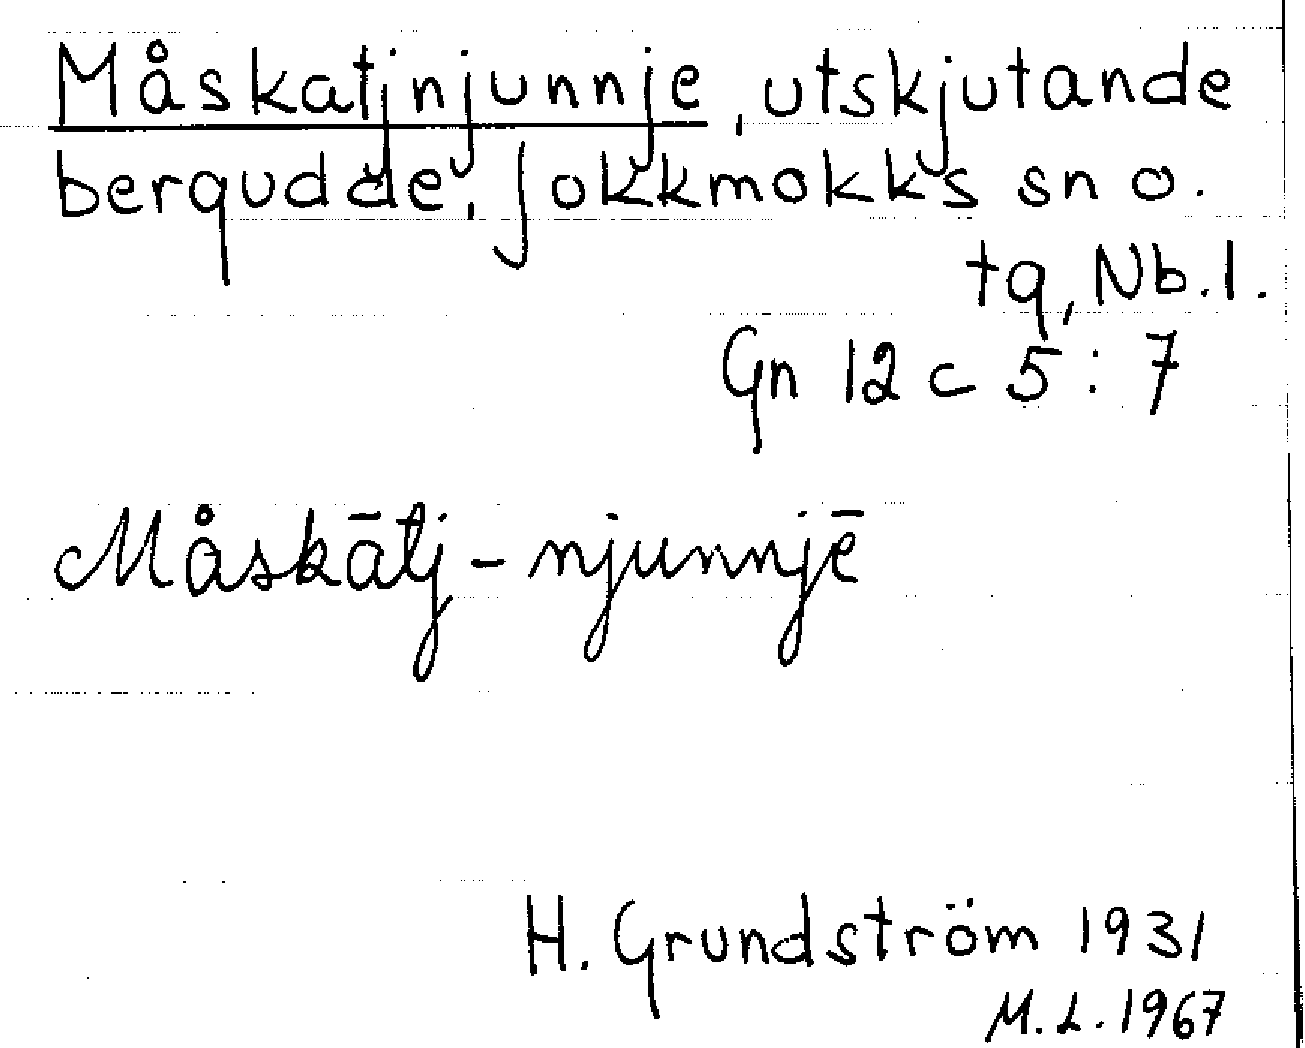 Måskatjnjunnje, utskjutande
bergudde, Jokkmokks sn o.
tg, Nb.l.
Gn 12 c 5:7
Måskātj-njunnjē
H. Grundström 1931
M.L. 1967